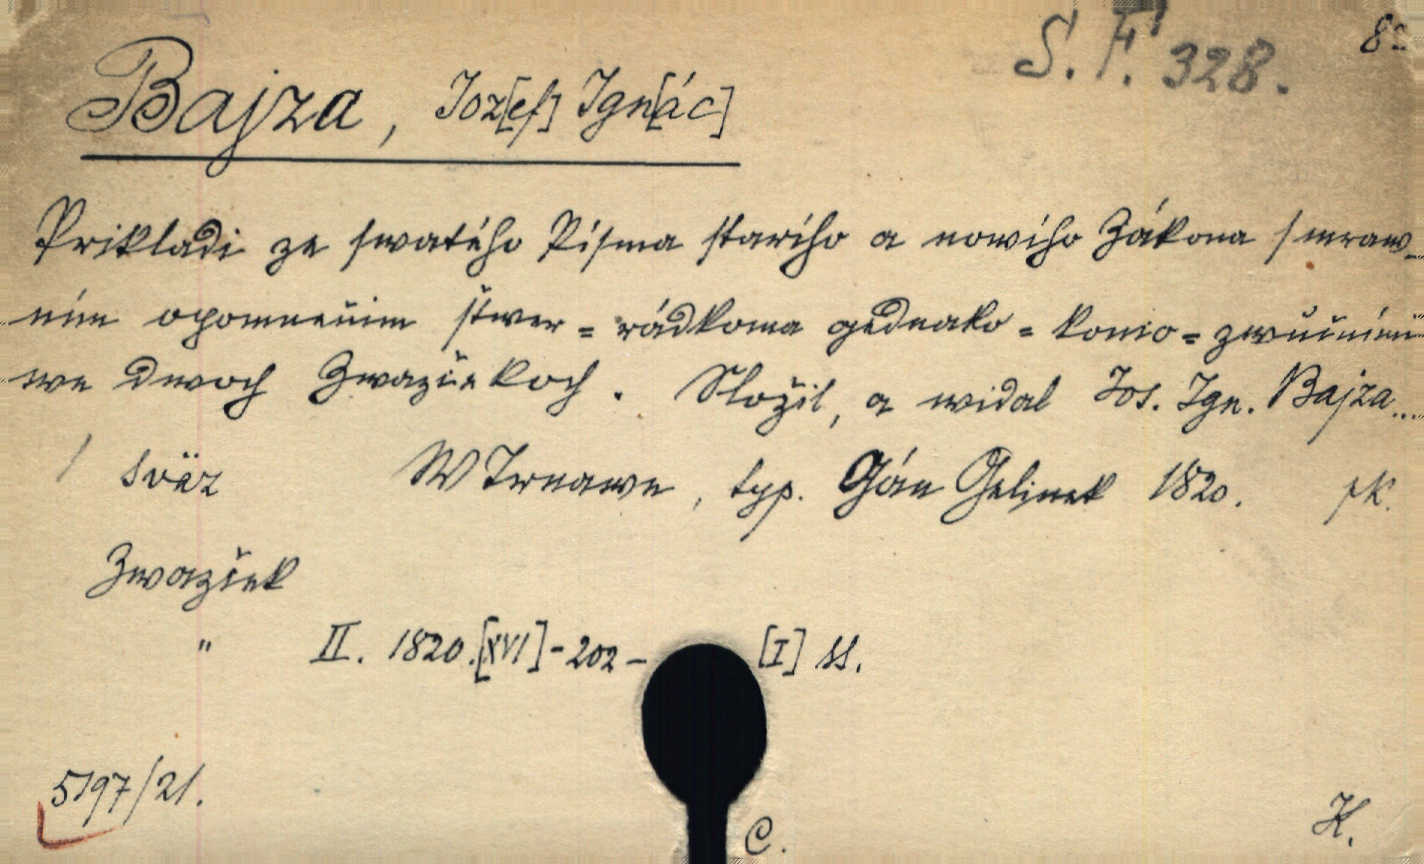 S. F. 328. 8°
Bajza, Joz[ef] Ign[ác]
Prikladi ze swatého Pisma starího a nowího Zákona s mraw-
ním opomnením štwer=rádkoma gednako=konco=zwučními
we dwoch Zwazčekoch. Složil, a widal Jos. Ign. Bajza...
1 sväz W Trnawe, typ. Gán Gelinek 1820. pk.
Zwazček
" II. 1820. [XVI]-202- [I] ss.
5197/21.
C. K.